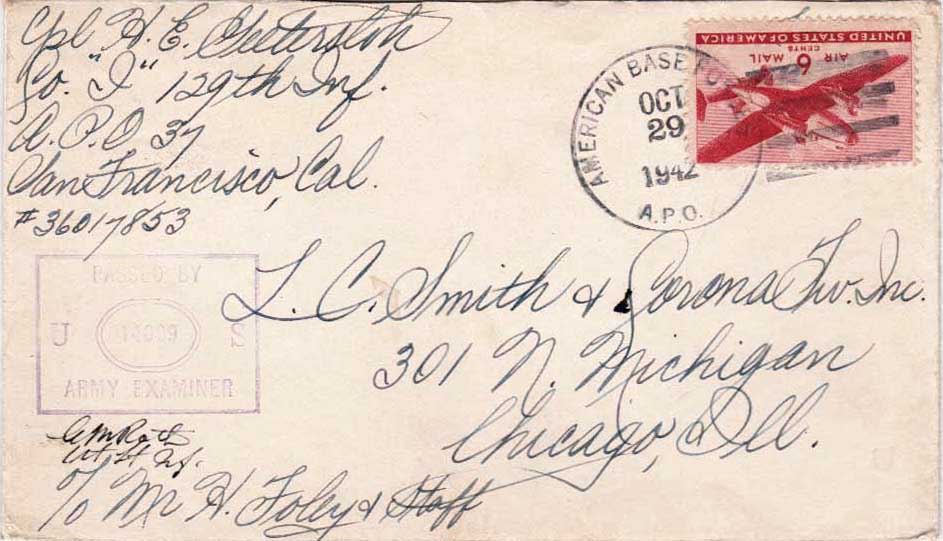 Cpl H. E.
Co. "I" 129th Inf.
A.P.O 37
San Francisco, Cal.
#36017853
UNITED STATES OF AMERICA
6 CENTS
AIR MAIL
AMERICAN BASE
OCT
29
1942
A.P.O.
PASSED BY
U S
ARMY EXAMINER
L. C. Smith & Corona Tw. Inc.
301 N. Michigan
Chicago, Ill.
Inf.
c/o Mr H. Foley & Staff